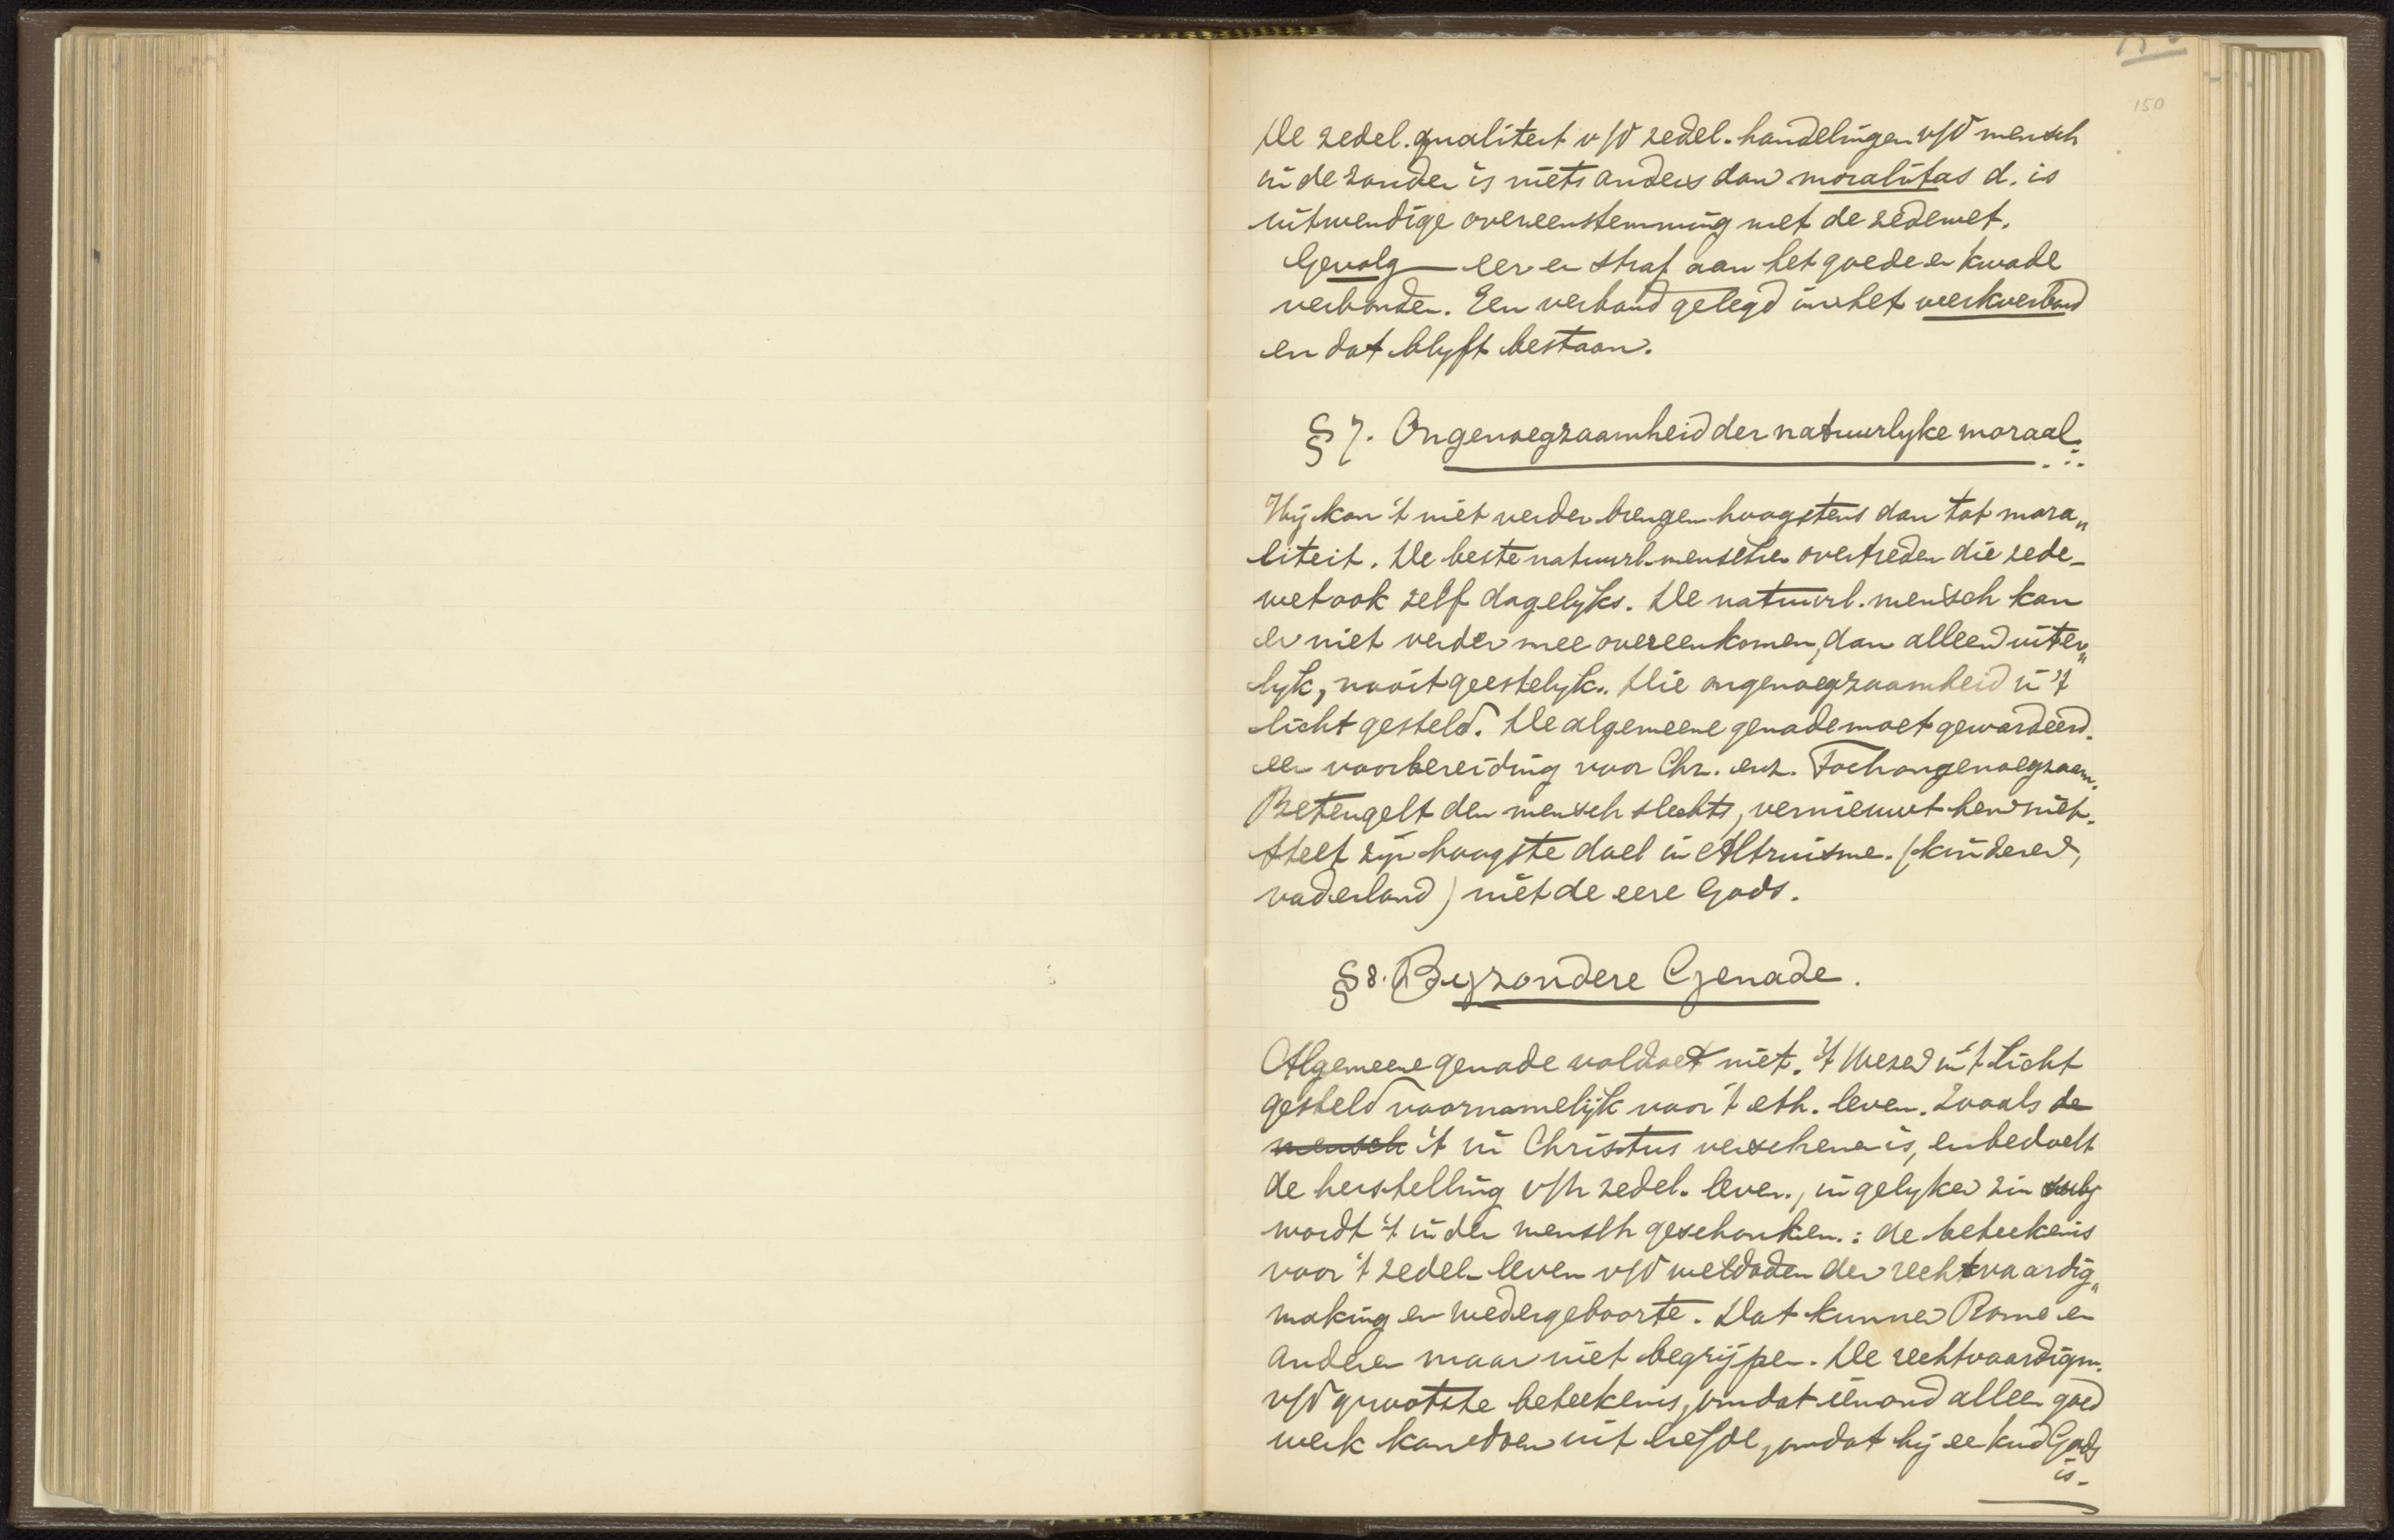 150
De zedel. qualiteit v/d zedel. handelingen v/d mensch
in de zonden is niets anders dan moralitas d. is
uitwendige overeenstemming met de zedewet.
Gevolg — eer en straf aan het goede en kwade
verbonden. Een verband gelegd in het werkverbond
en dat blyft bestaan.
§ 7. Ongenoegzaamheid der natuurlyke moraal.
Wij kan 't niet verder brengen hoogstens dan tot mora„
liteit. De beste natuurl. menschen overtreden die zede-
wet ook zelf dagelyks. De natuurl. mensch kan
er niet verder mee overeenkomen, dan alleen uiter„
lyk, nooit geestelyk. Die ongenoegzaamheid in 't
licht gesteld. De algemeene genade moet gewardeerd.
een voorbereiding voor Chr. enz. Toch ongenoegzaam.
Beteugelt den mensch slechts, vernieuwt hem niet.
Stelt zijn hoogste doel in Altruisme. (kinderen,
vaderland) niet de eere Gods.
§ 8. Byzondere Genade.
Algemeene genade voldoet niet. 't Wezen in 't Licht
gesteld voornamelijk voor 't eth. leven. Zooals de
mensch 't in Christus verschenen is, en bedoelt
de herstelling v/h zedel. leven., in gelyken zin
wordt 't in den mensch geschonken.: de beteekenis
voor 't zedel. leven v/d weldaden der rechtvaardig„
making en wedergeboorte. Dat kunnen Rome en
anderen maar niet begrijpen. De rechtvaardigm.
v/d grootste beteekenis, omdat iemand alleen goed
werk kan doen uit liefde, omdat hij een kind Gods
is.